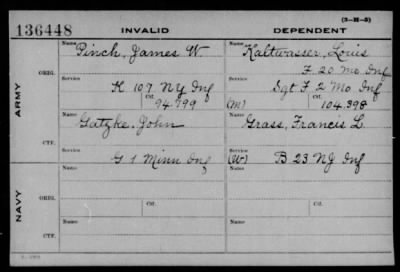 (3-H-5)
136448 INVALID DEPENDENT
Name Pinch, James W. Name Kaltwasser, Louis
F 20 Mo. Inf
ORIG. Service K 109 NY Inf Service Sgt F 2 Mo Inf
Ctf. 94.799 (M) Ctf. 104.398
ARMY
Name Gatzke, John Name Grass, Francis L.
CTF. Service G 1 Minn Inf Service (W) B 23 NJ Inf
Name Name
ORIG. Service Ctf. Service Ctf.
NAVY
Name Name
CTF. Service Service